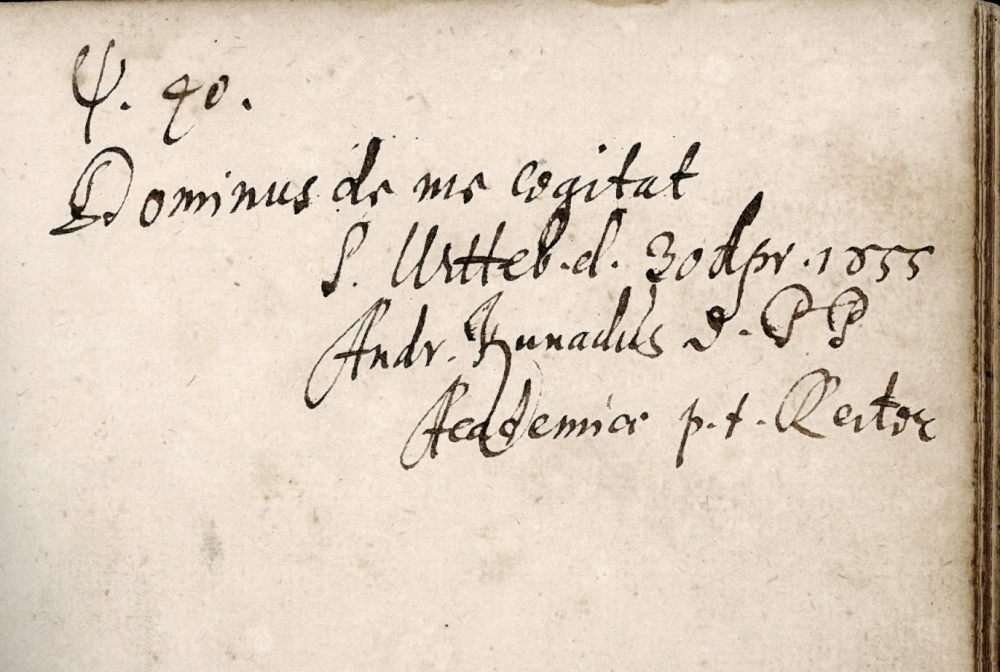 Ψ. 40.
Dominus de me cogitat
S. Witteb. d. 30 Apr. 1655
Andr. Kunadus D. PP
Academiæ p. t. Rector